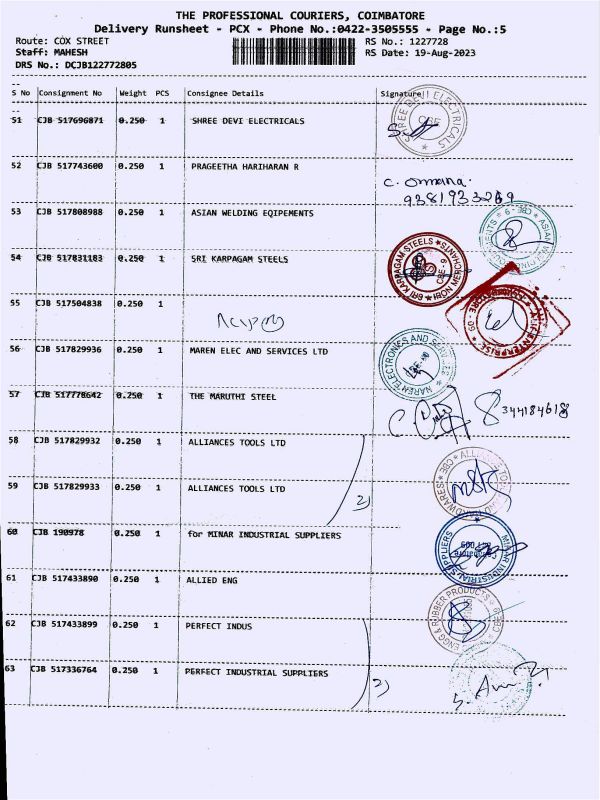 THE PROFESSIONAL COURIERS, COIMBATORE
Delivery Runsheet - PCX - Phone No.:0422-3505555 - Page No.:5
Route: COX STREET RS No.: 1227728
Staff: MAHESH RS Date: 19-Aug-2023
DRS No.: DCJB122772805
S No Consignment No Weight PCS Consignee Details Signature
51 CJB 517696871 0.250 1 SHREE DEVI ELECTRICALS
SHREE DEVI ELECTRICALS
CBE
52 CJB 517743600 0.250 1 PRAGEETHA HARIHARAN R
C. Ommana.
9381933269
53 CJB 517808988 0.250 1 ASIAN WELDING EQIPEMENTS
54 CJB 517831183 0.250 1 SRI KARPAGAM STEELS
SRI KARPAGAM STEELS
CBE-9
55 CJB 517504838 0.250 1
ENTERPRISE
56 CJB 517829936 0.250 1 MAREN ELEC AND SERVICES LTD
57 CJB 517778642 0.250 1 THE MARUTHI STEEL
8344184618
58 CJB 517829932 0.250 1 ALLIANCES TOOLS LTD
59 CJB 517829933 0.250 1 ALLIANCES TOOLS LTD
2)
60 CJB 190978 0.250 1 for MINAR INDUSTRIAL SUPPLIERS
MINAR INDUSTRIAL SUPPLIERS
61 CJB 517433890 0.250 1 ALLIED ENG
ENGG & RUBBER PRODUCTS
62 CJB 517433899 0.250 1 PERFECT INDUS
63 CJB 517336764 0.250 1 PERFECT INDUSTRIAL SUPPLIERS
2)